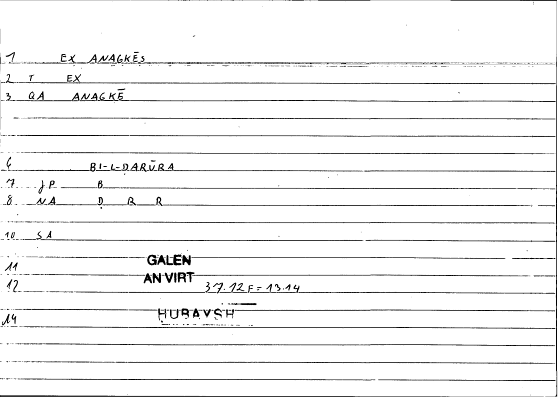 1 EX ANAGKĒS
2 T EX
3 QA ANAGKĒ
6 BI-L-DARŪRA
7 JP B
8 NA D R R
10 SA
11 GALEN
12 AN VIRT 37.12 F = 13.14
14 HUBAYSH